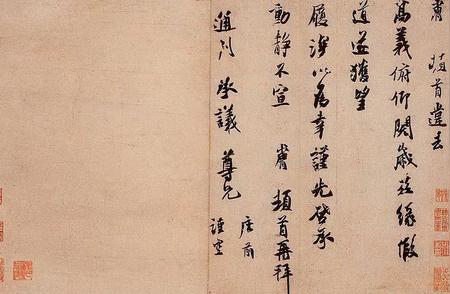 膚 頓首違去
高義俯仰閱歲茲緣假
道遂獲望
履深以為幸謹先啓承
動靜不宣 膚 頓首再拜
通判 承議 尊兄 座前
謹空